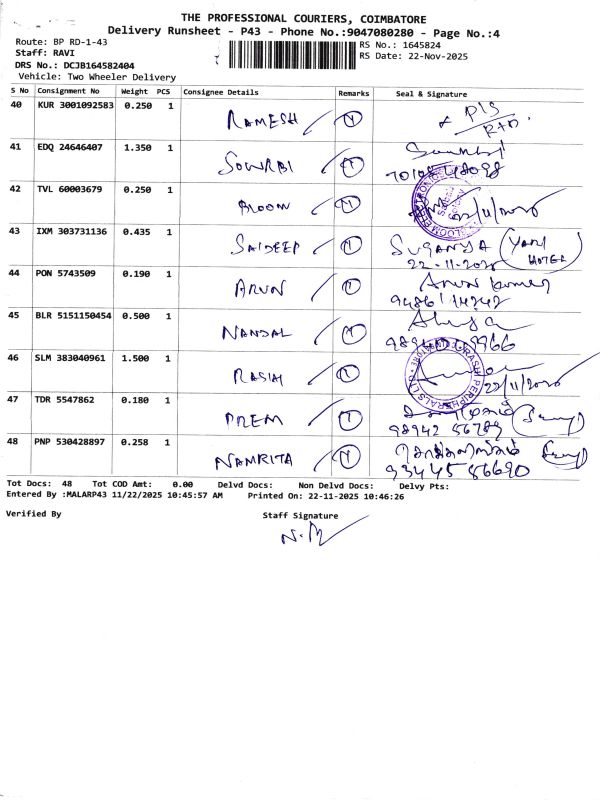 THE PROFESSIONAL COURIERS, COIMBATORE
Delivery Runsheet - P43 - Phone No.:9047080280 - Page No.:4
Route: BP RD-1-43
RS No.: 1645824
Staff: RAVI
RS Date: 22-Nov-2025
DRS No.: DCJB164582404
Vehicle: Two Wheeler Delivery
S No Consignment No Weight PCS Consignee Details Remarks Seal & Signature
40 KUR 3001092583 0.250 1 RAMESH
41 EDQ 24646407 1.350 1 SOWRBI
42 TVL 60003679 0.250 1 BLOOM
43 IXM 303731136 0.435 1 SAIDEEP SUGANYA
22-11-2025
44 PON 5743509 0.190 1 ARUN Arun Kumar
45 BLR 5151150454 0.500 1 NANDAL
46 SLM 383040961 1.500 1 RASHI 22/11/2025
47 TDR 5547862 0.180 1 PREM
98942 56789
48 PNP 530428897 0.258 1 NAMRITA
93445 86690
Tot Docs: 48 Tot COD Amt: 0.00 Delvd Docs: Non Delvd Docs: Delvy Pts:
Entered By :MALARP43 11/22/2025 10:45:57 AM Printed On: 22-11-2025 10:46:26
Verified By Staff Signature